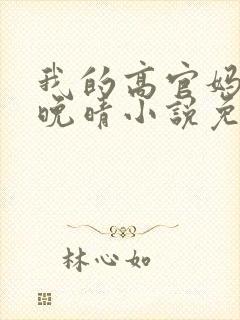 我的高官妈
晚晴小说免
林心如